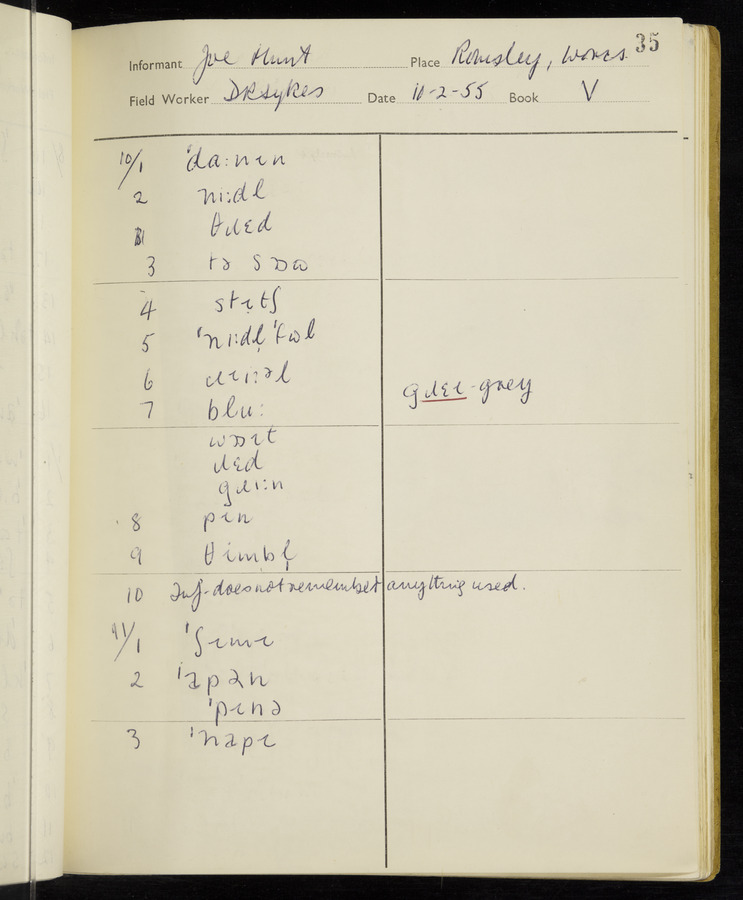 35
Informant Joe Hunt Place Romsley, Worcs.
Field Worker D R Sykes Date 10-2-55 Book V
10/1 ˈdaːnɪn
2 niːdl
θɹɛd
3 tə sɔɷ
4 stɪtʃ
5 ˈniːdl̩ ˈtɷl
6
7 bluː
gɹɛɪ - grey
wɒɪt
ɹɛd
gɹiːn
8 pɪn
9 θimbl̩
10 Inf. does not remember anything used.
11/1 ˈʃɪmɪ
2 ˈapən
ˈpɪnə
3 ˈnapɪ